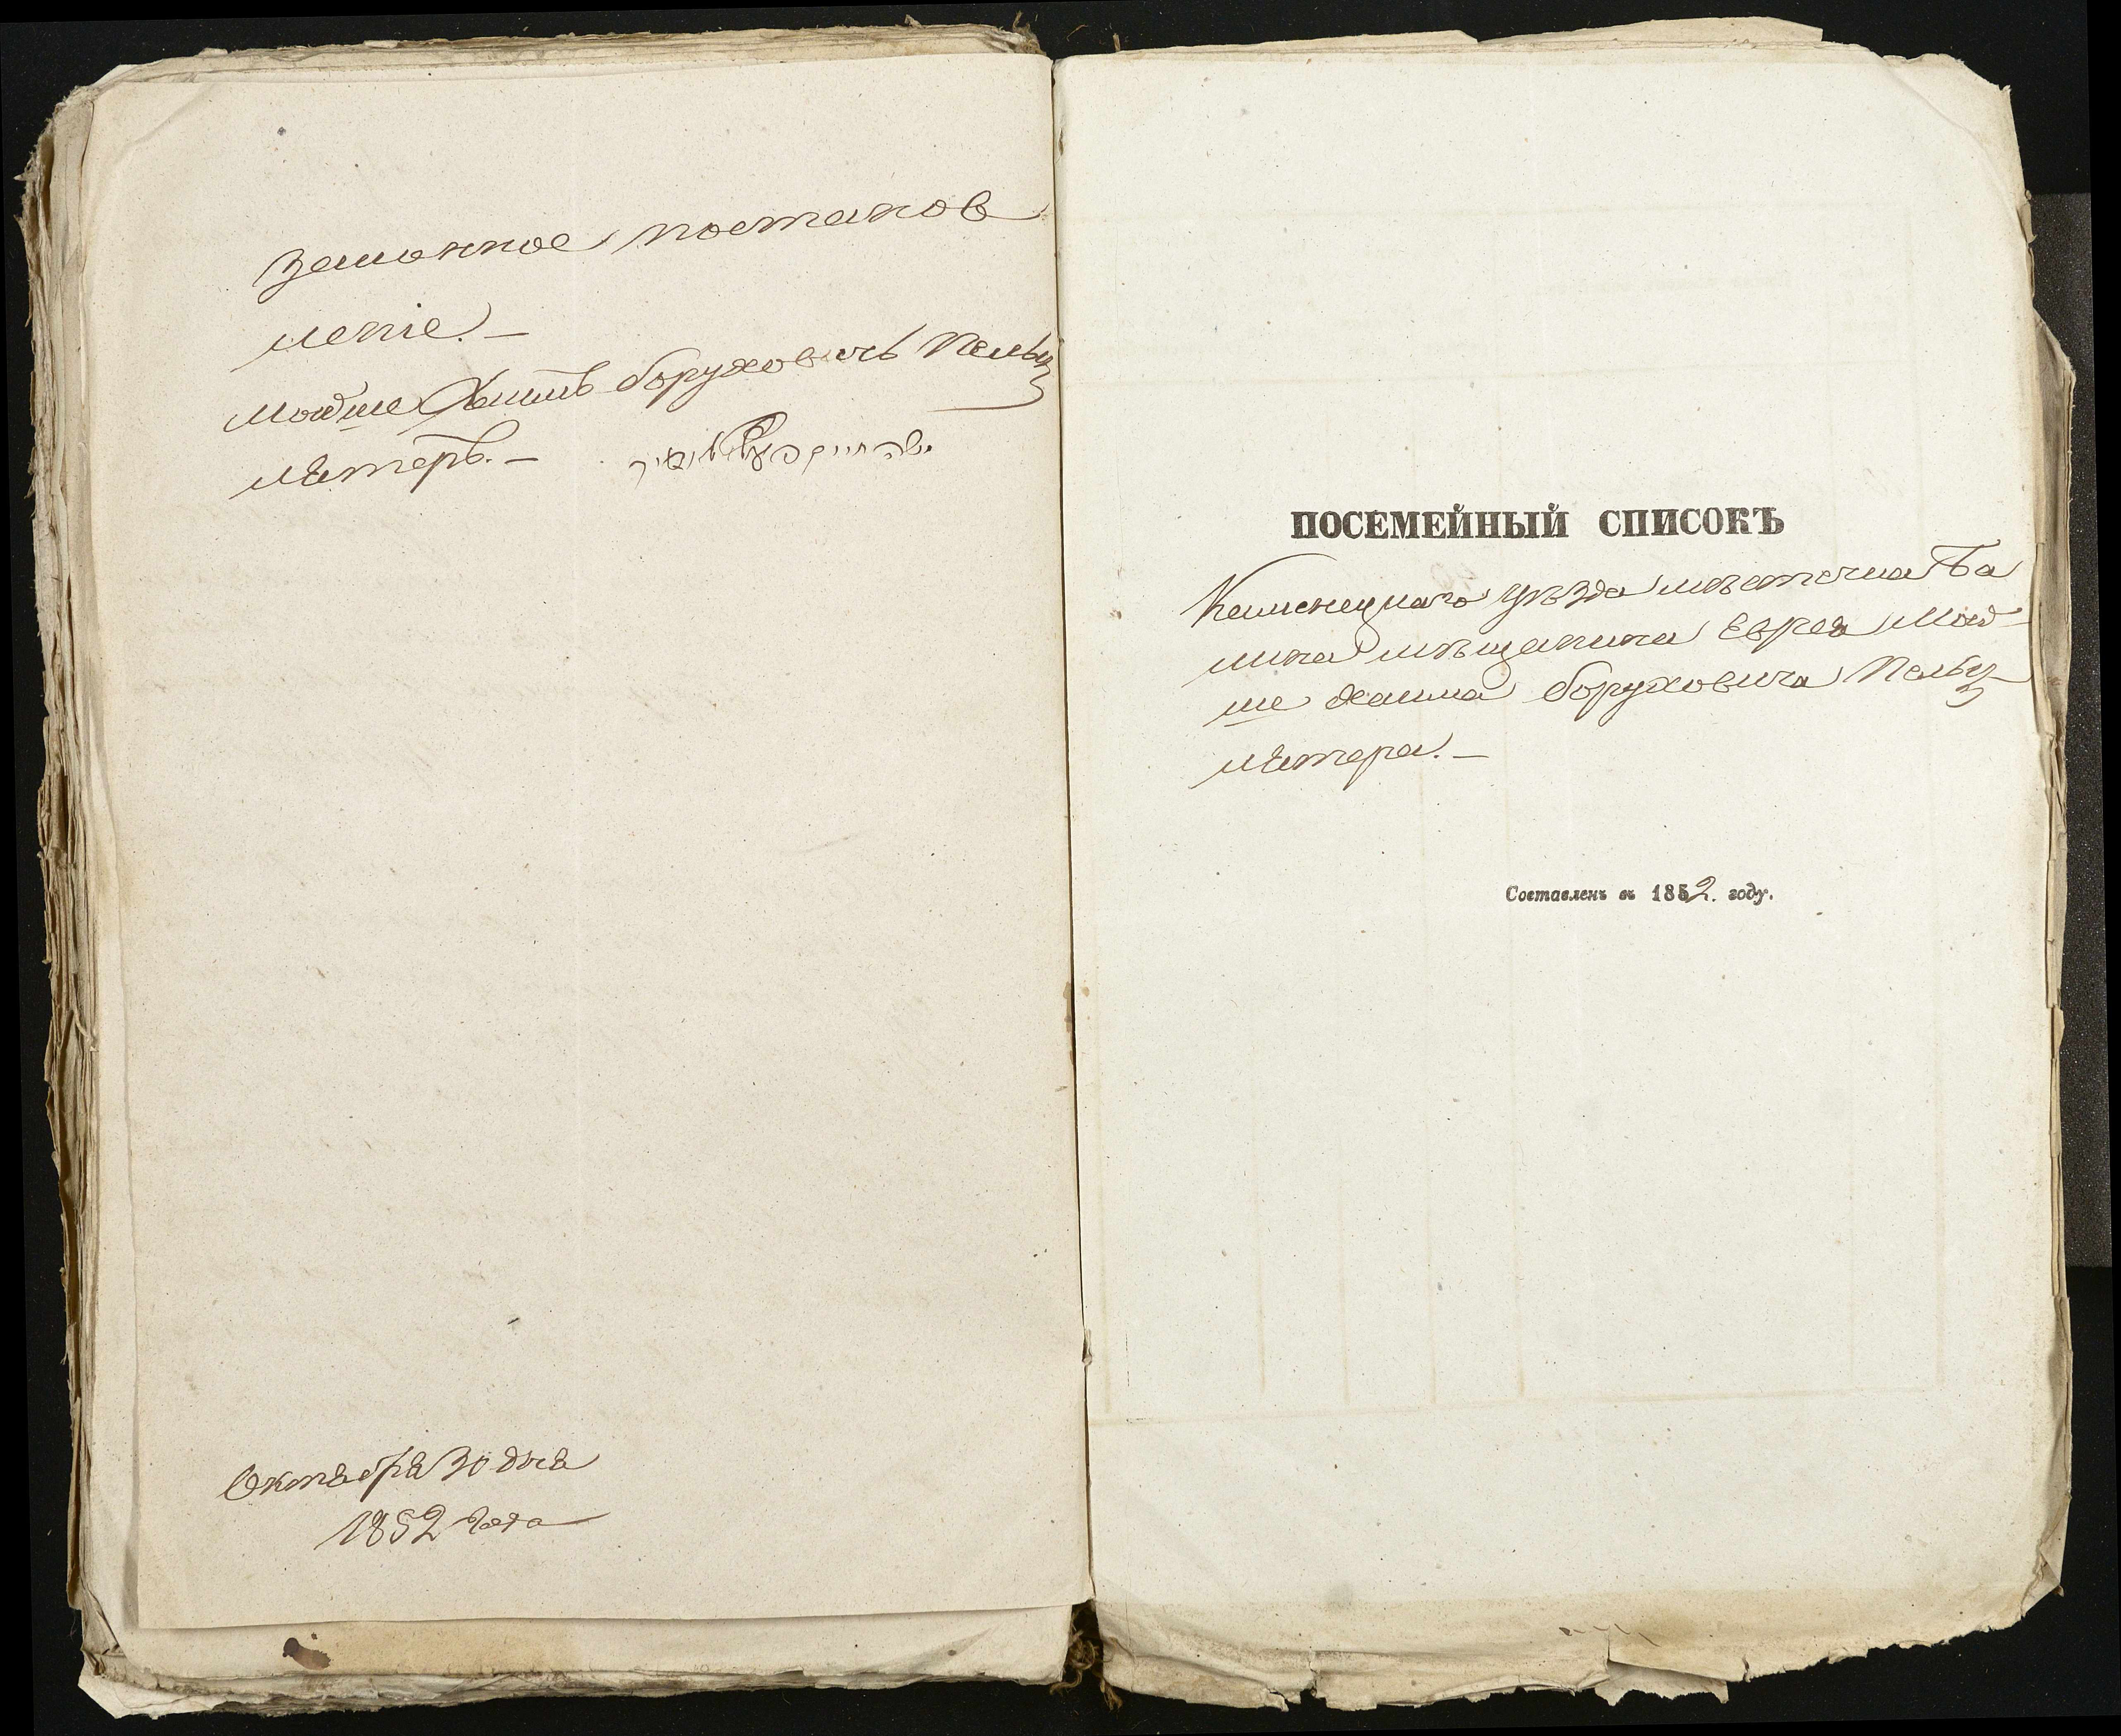 законное постанов
леніе. –
Мошше Хаимъ Боруховичъ Пельц
мтеръ. –
Октября 30 дня
1852 года
ПОСЕМЕЙНЫЙ СПИСОКЪ
Каменецкаго уѣзда мѣстечка
мѣщанина Еврея Мош
ше Хаима Боруховича Пельц
Составленъ въ 1852. году.